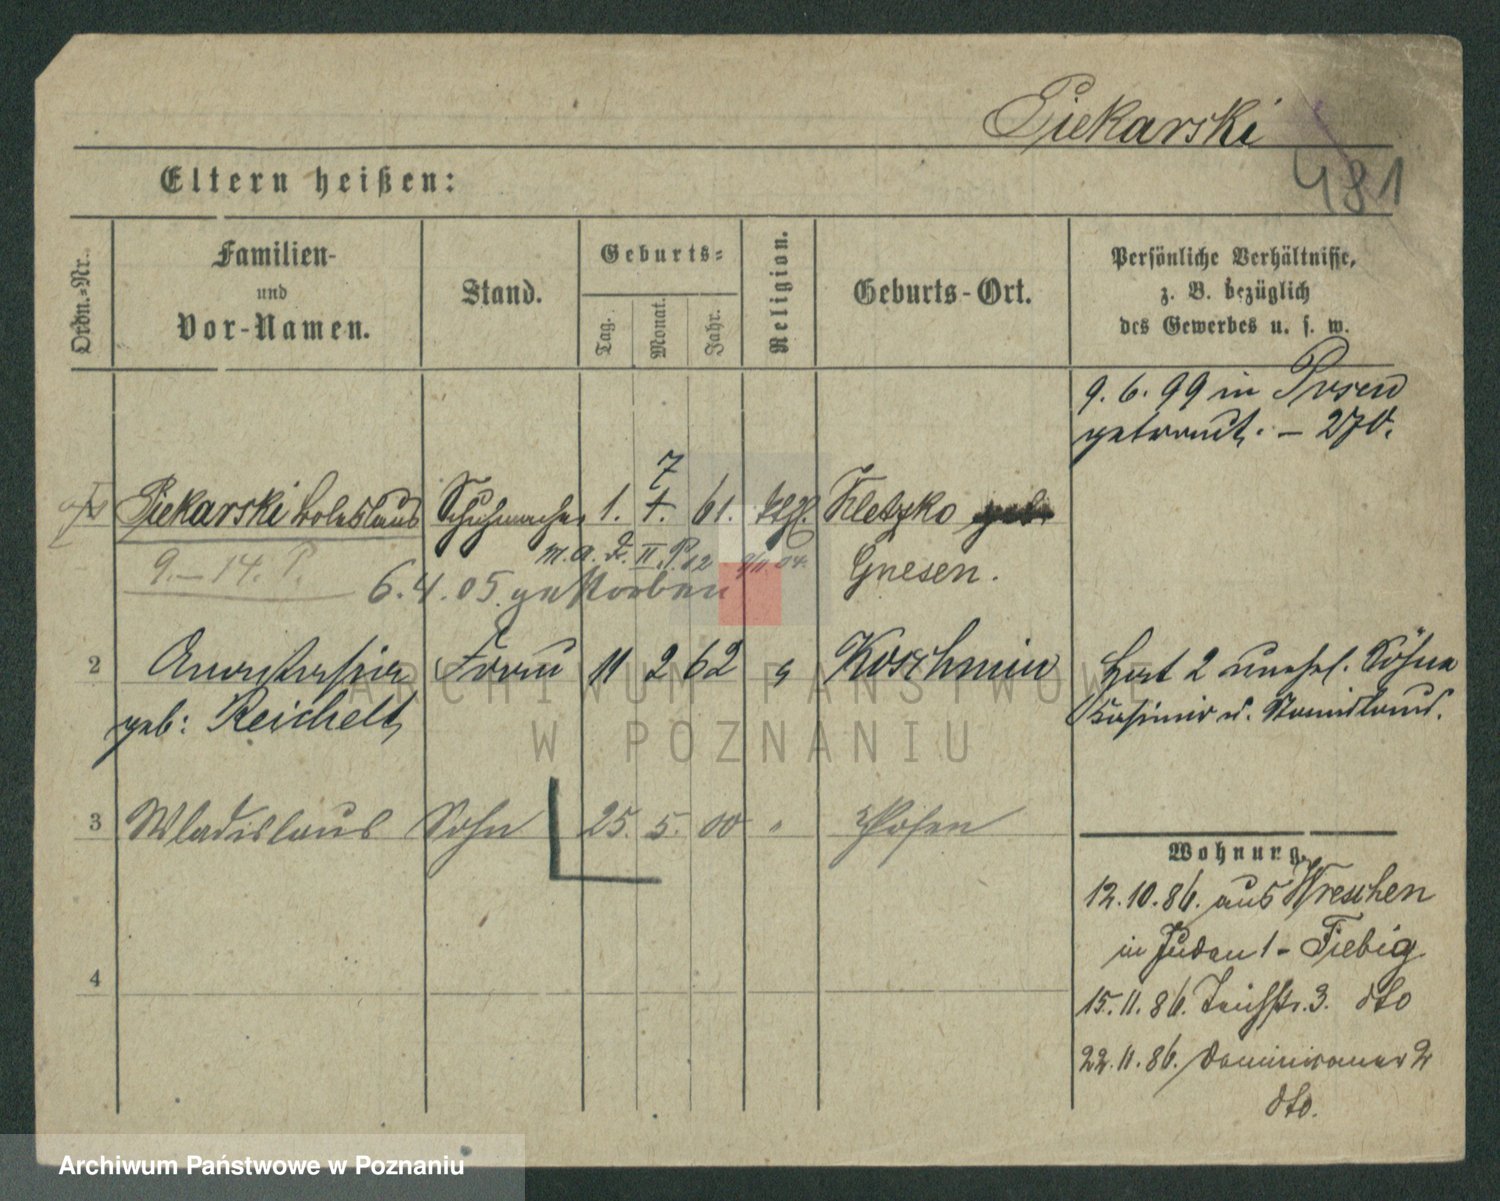 Piekarski
481
Eltern heißen:
Ordn.-Nr.
Familien-
und
Vor-Namen.
Stand.
Geburts-
Tag.
Monat.
Jahr.
Religion.
Geburts-Ort.
Persönliche Verhältnisse,
z. B. bezüglich
des Gewerbes u. s. w.
9. 6. 99 in Posen
getraut. – 270.
Piekarski Boleslaus Schuhmacher 1. 7 61. kthl. Kletzko
Gnesen.
9. – 14. P.
6. 4. 05. gestorben
2 Anastasia Frau 11 2 62 " Koschmin
geb: Reichelt
Hat 2 unehel. Söhne
Casimir u. Stanislaus.
3 Wladislaus Sohn 25. 5. 00 " Posen
4
Wohnung.
12. 10. 86. aus Wreschen
in Juden 1 – Fiebig
15. 11. 86. Teichstr. 3. dto
22. 11. 86. Dominikaner 2
dto.
ARCHIWUM PAŃSTWOWE
W POZNANIU
Archiwum Państwowe w Poznaniu